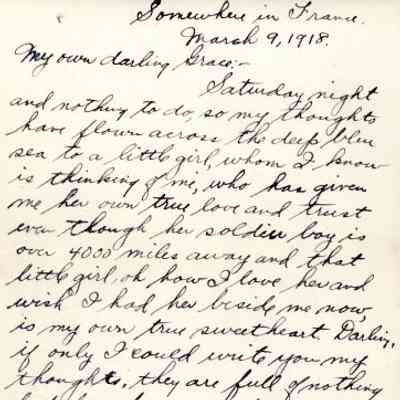 Somewhere in France.
March 9, 1918.
My own darling Grace:-
Saturday night
and nothing to do, so my thoughts
have flown across the deep blue
sea to a little girl, whom I know
is thinking of me, who has given
me her own true love and trust
even though her soldier boy is
over 4000 miles away and that
little girl, oh how I love her and
wish I had her beside me now,
is my own true sweetheart. Darling,
if only I could write you my
thoughts, they are full of nothing